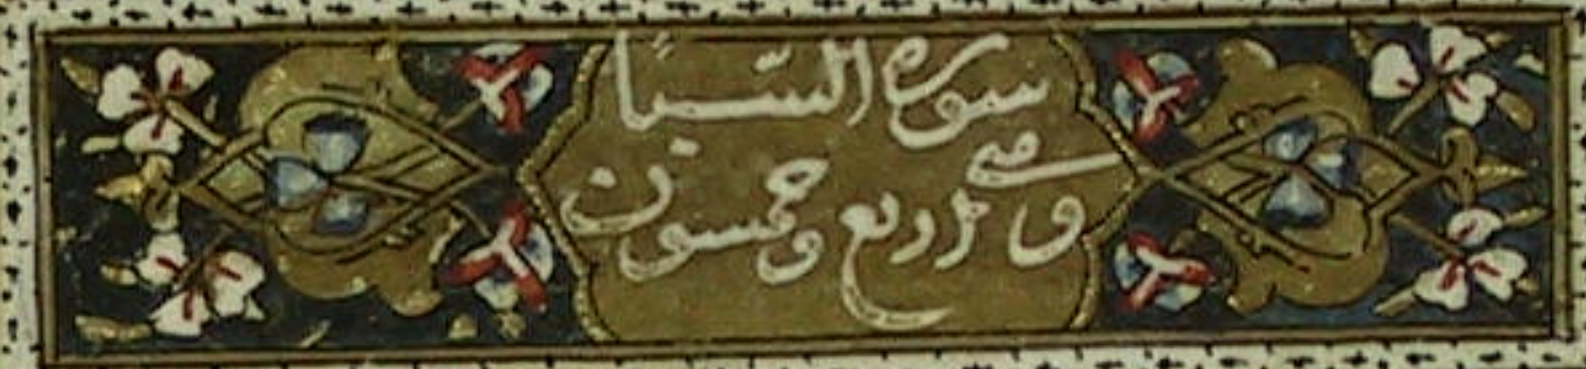 سورة السبأ
وهي اربع وخمسون